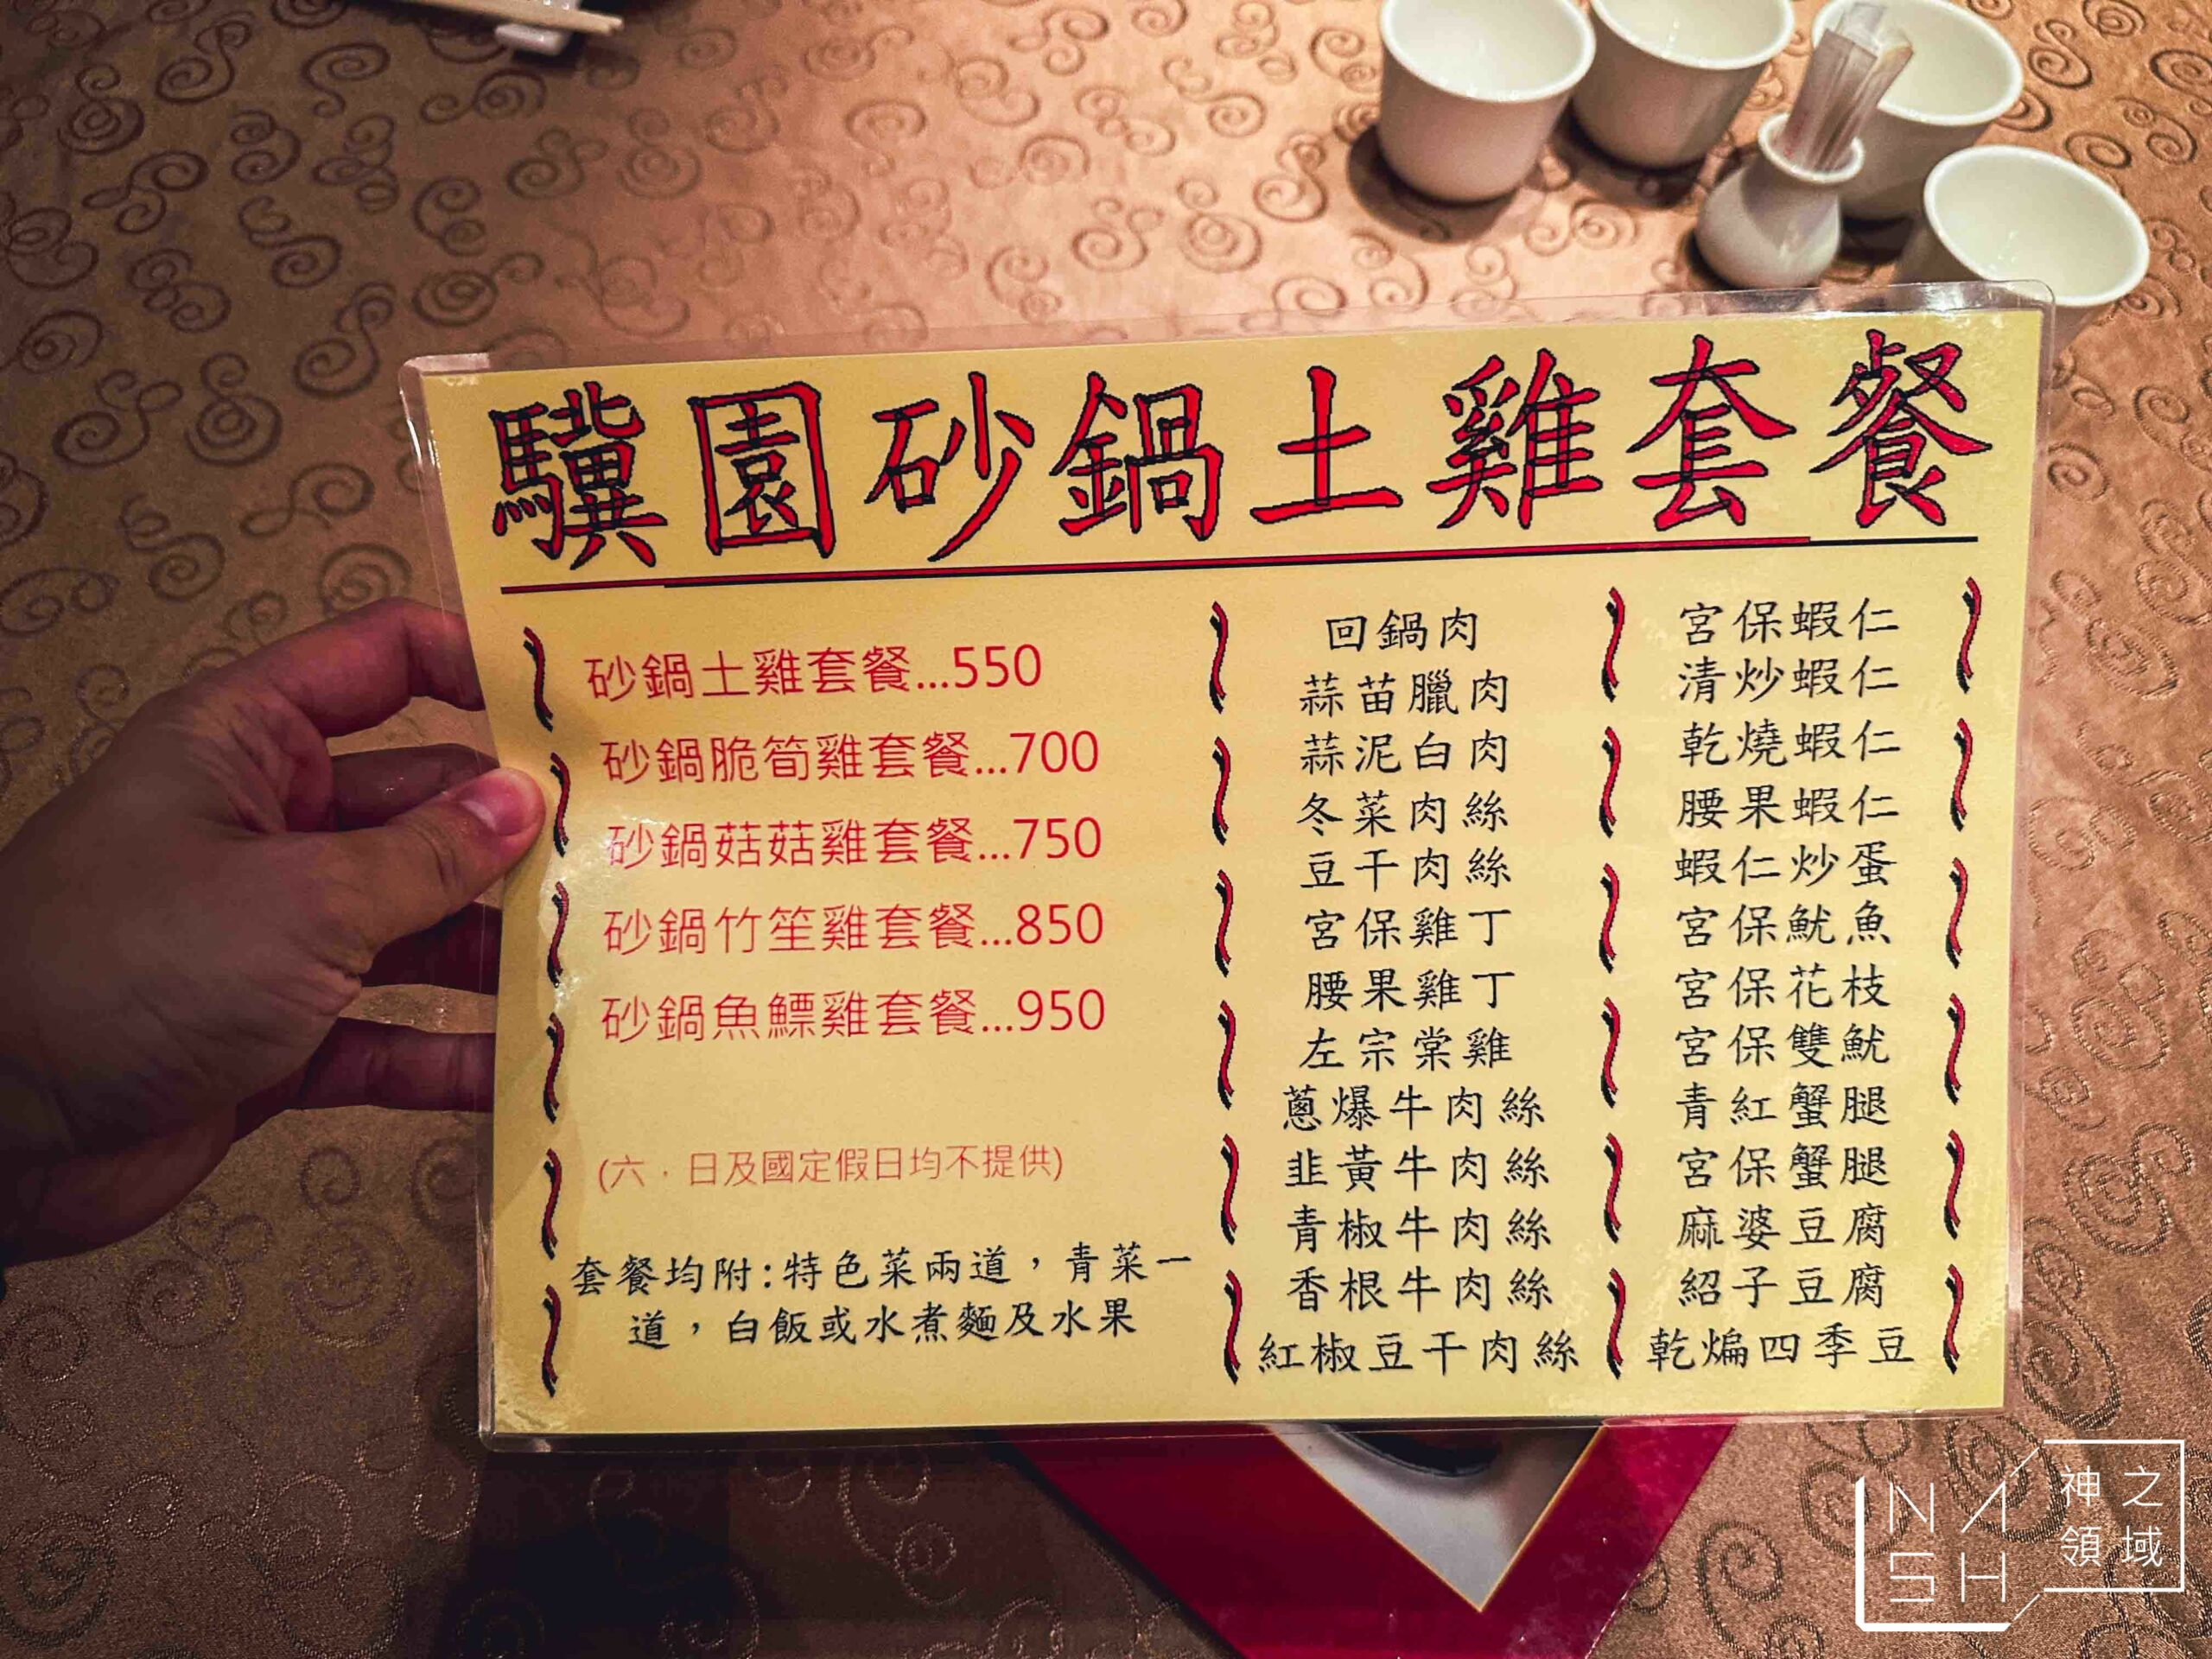 驥園砂鍋土雞套餐
砂鍋土雞套餐...550
砂鍋脆筍雞套餐...700
砂鍋菇菇雞套餐...750
砂鍋竹笙雞套餐...850
砂鍋魚鰾雞套餐...950
(六．日及國定假日均不提供)
套餐均附:特色菜兩道，青菜一
道，白飯或水煮麵及水果
回鍋肉
蒜苗臘肉
蒜泥白肉
冬菜肉絲
豆干肉絲
宮保雞丁
腰果雞丁
左宗棠雞
蔥爆牛肉絲
韭黃牛肉絲
青椒牛肉絲
香根牛肉絲
紅椒豆干肉絲
宮保蝦仁
清炒蝦仁
乾燒蝦仁
腰果蝦仁
蝦仁炒蛋
宮保魷魚
宮保花枝
宮保雙魷
青紅蟹腿
宮保蟹腿
麻婆豆腐
紹子豆腐
乾煸四季豆
NASH
神之
領域